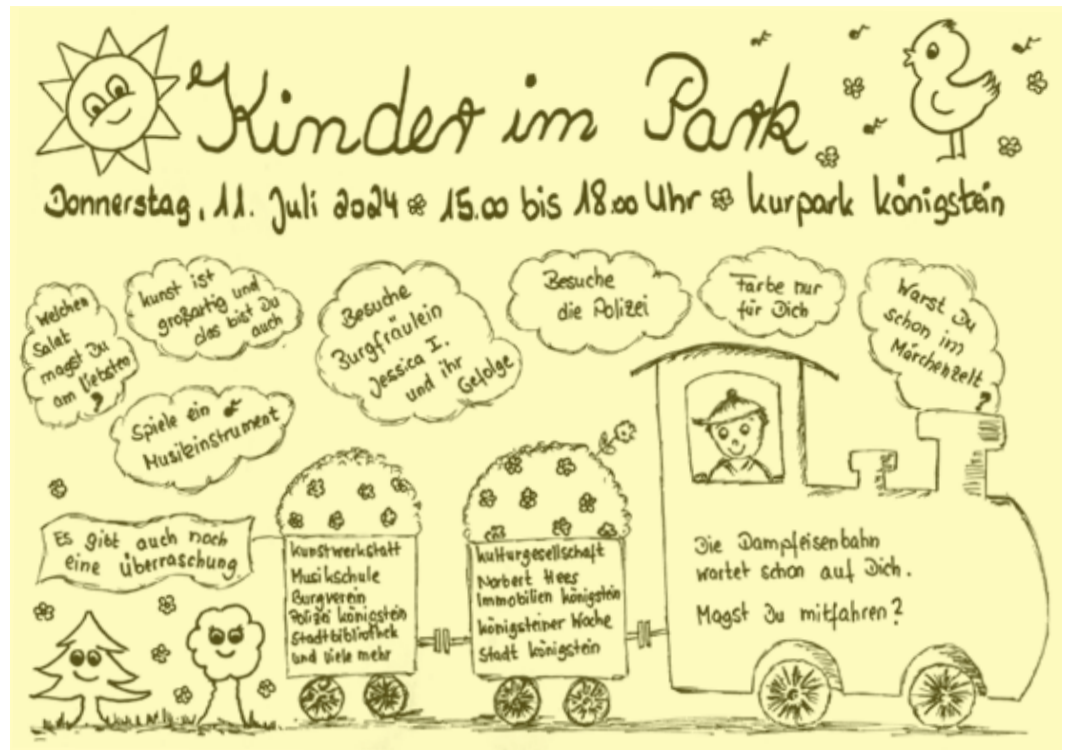 Kinder im Park
Donnerstag, 11. Juli 2024 15.00 bis 18.00 Uhr Kurpark Königstein
Welchen
Salat
magst Du
am liebsten
?
Kunst ist
großartig und
das bist Du
auch
Spiele ein
Musikinstrument
Besuche
Burgfräulein
Jessica I.
und ihr
Gefolge
Besuche
die Polizei
Farbe nur
für Dich
Warst Du
schon im
Märchenzelt
?
Es gibt auch noch
eine Überraschung
Kunstwerkstatt
Musikschule
Burgverein
Polizei Königstein
Stadtbibliothek
und viele mehr
Kulturgesellschaft
Norbert Hees
Immobilien Königstein
Königsteiner Woche
Stadt Königstein
Die Dampfeisenbahn
wartet schon auf Dich.
Magst Du mitfahren?